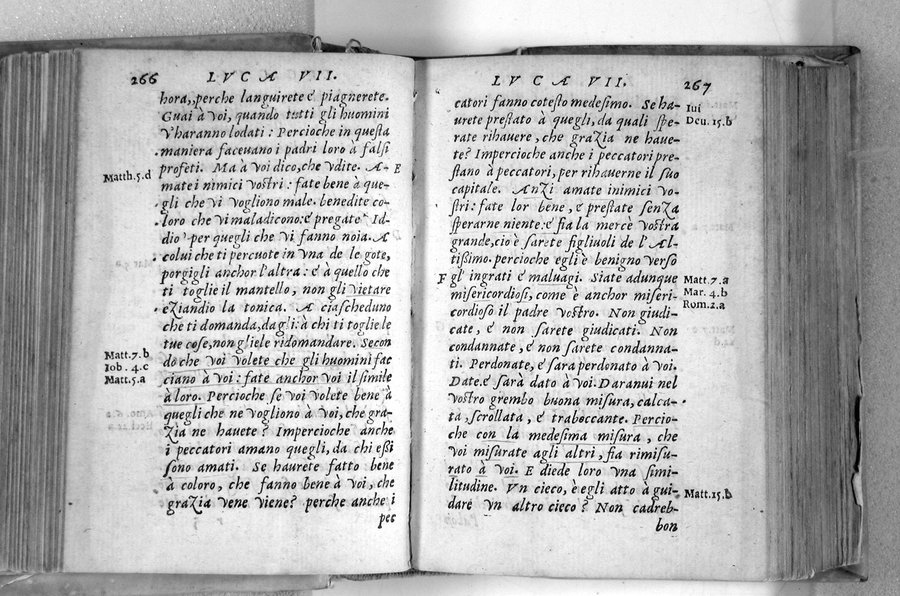 266 LVCÆ VII.
hora,,perche languirete é piagnerete.
Guai à voi, quando tutti gli huomini
v'haranno lodati : Percioche in questa
maniera faceuano i padri loro à falsi
profeti. Ma à voi dico,che vdite. A- E
Matth.5.d
mate i nimici vostri : fate bene à que-
gli che vi vogliono male. benedite co-
loro che vi maladicono:é pregate Id-
dio per quegli che vi fanno noia. A
colui che ti percuote in vna de le gote,
porgigli anchor l'altra: é à quello che
ti toglie il mantello, non gli vietare
eziandio la tonica. A ciascheduno
che ti domanda,dagli:à chi ti toglie le
tue cose,non gliele ridomandare. Secon
Matt.7.b
do che voi volete che gli huomini fac
Iob. 4.c
ciano à voi: fate anchor voi il simile
Matt.5.a
à loro. Percioche se voi volete bene à
quegli che ne vogliono à voi, che gra-
zia ne hauete? Impercioche anche
i peccatori amano quegli, da chi essi
sono amati. Se haurete fatto bene
à coloro, che fanno bene à voi, che
grazia vene viene? perche anche i
pec
LVCÆ VII. 267
catori fanno cotesto medesimo. Se ha-
Iui
urete prestato à quegli,da quali spe-
Deu. 15.b
rate rihauere, che grazia ne haue-
te? Impercioche anche i peccatori pre-
stano à peccatori, per rihauerne il suo
capitale. Anzi amate inimici vo-
stri: fate lor bene, é prestate senza
sperarne niente: é fia la mercè vostra
grande,cio è sarete figliuoli de l'Al-
tissimo. percioche egli è benigno verso
F gl' ingrati é maluagi. Siate adunque
Matt.7.a
misericordiosi, come è anchor miseri-
Mar. 4.b
cordioso il padre vostro. Non giudi-
Rom.2.a
cate, é non sarete giudicati. Non
condannate, é non sarete condanna-
ti. Perdonate, é sara perdonato à voi.
Date.é sarà dato à voi. Daranui nel
vostro grembo buona misura, calca-
ta, scrollata, é traboccante. Percio-
che con la medesima misura, che
voi misurate agli altri, fia rimisu-
rato à voi. E diede loro vna simi-
litudine. Vn cieco, è egli atto à gui-
Matt.15.b
dare vn altro cieco? Non cadreb-
bon